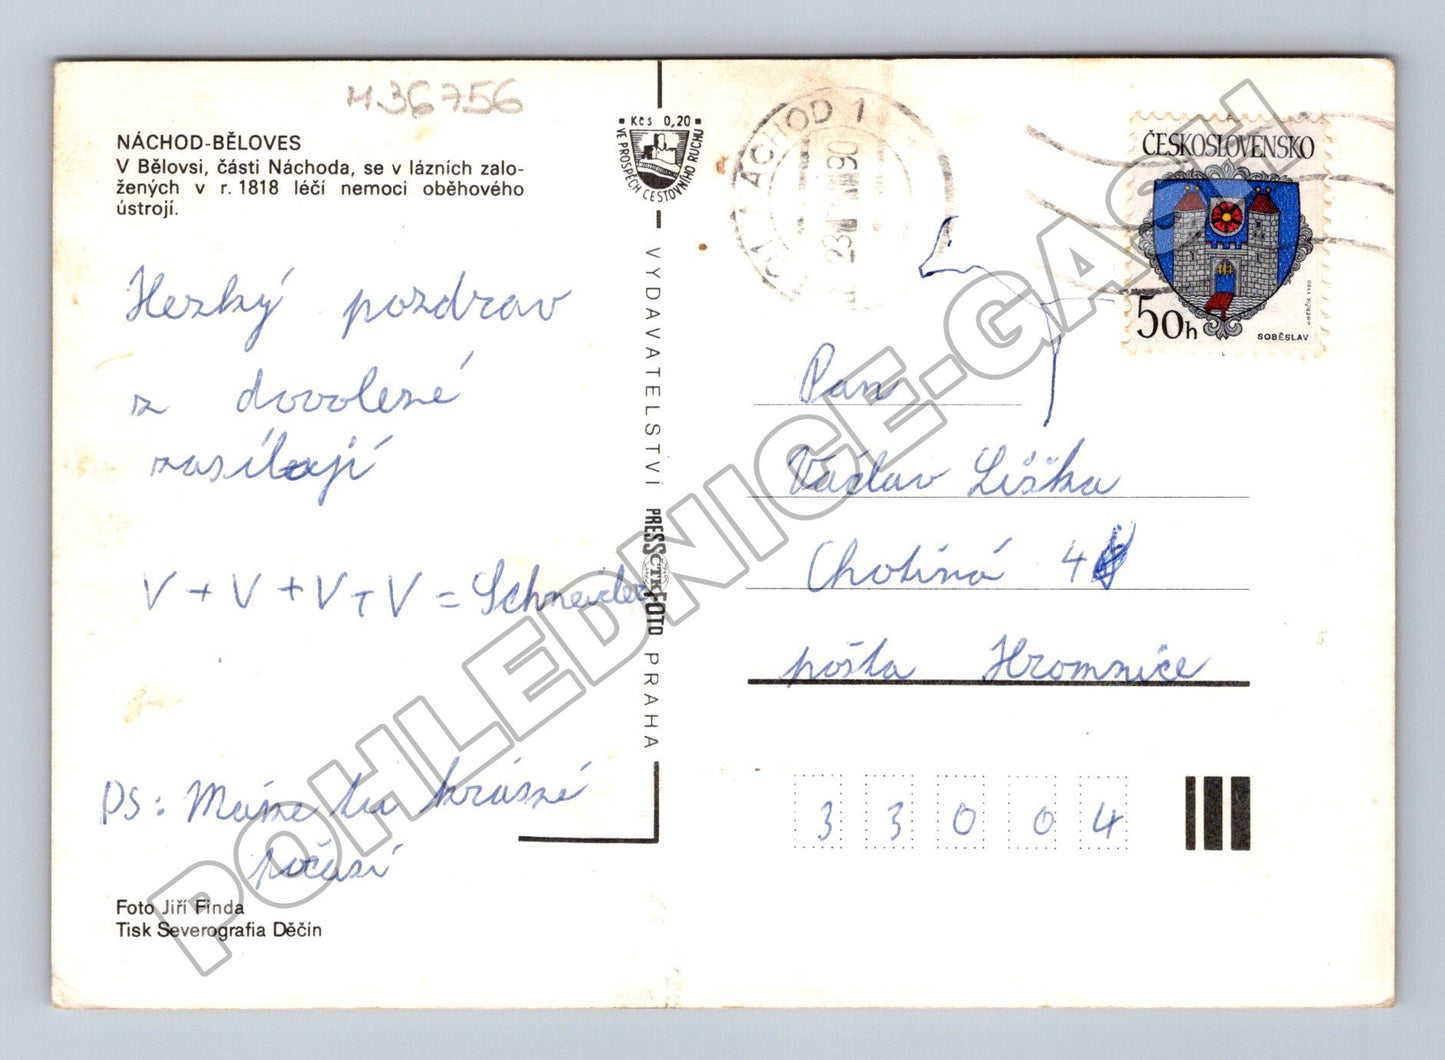 M36756
NÁCHOD-BĚLOVES
V Bělovsi, části Náchoda, se v lázních zalo-
žených v r. 1818 léčí nemoci oběhového
ústrojí.
Hezký pozdrav
z dovolené
zasílají
V + V + V + V = Schneider
PS: Máme tu krásné
počasí
Foto Jiří Finda
Tisk Severografia Děčín
Kčs 0,20
VE PROSPĚCH CESTOVNÍHO RUCHU
VYDAVATELSTVÍ PRESSFOTO PRAHA
ČTK
NÁCHOD 1
ČESKOSLOVENSKO
50h
SOBĚSLAV
Pan
Václav Liška
Chotiná 4
pošta Hromnice
33004
POHLEDNICE-GASH